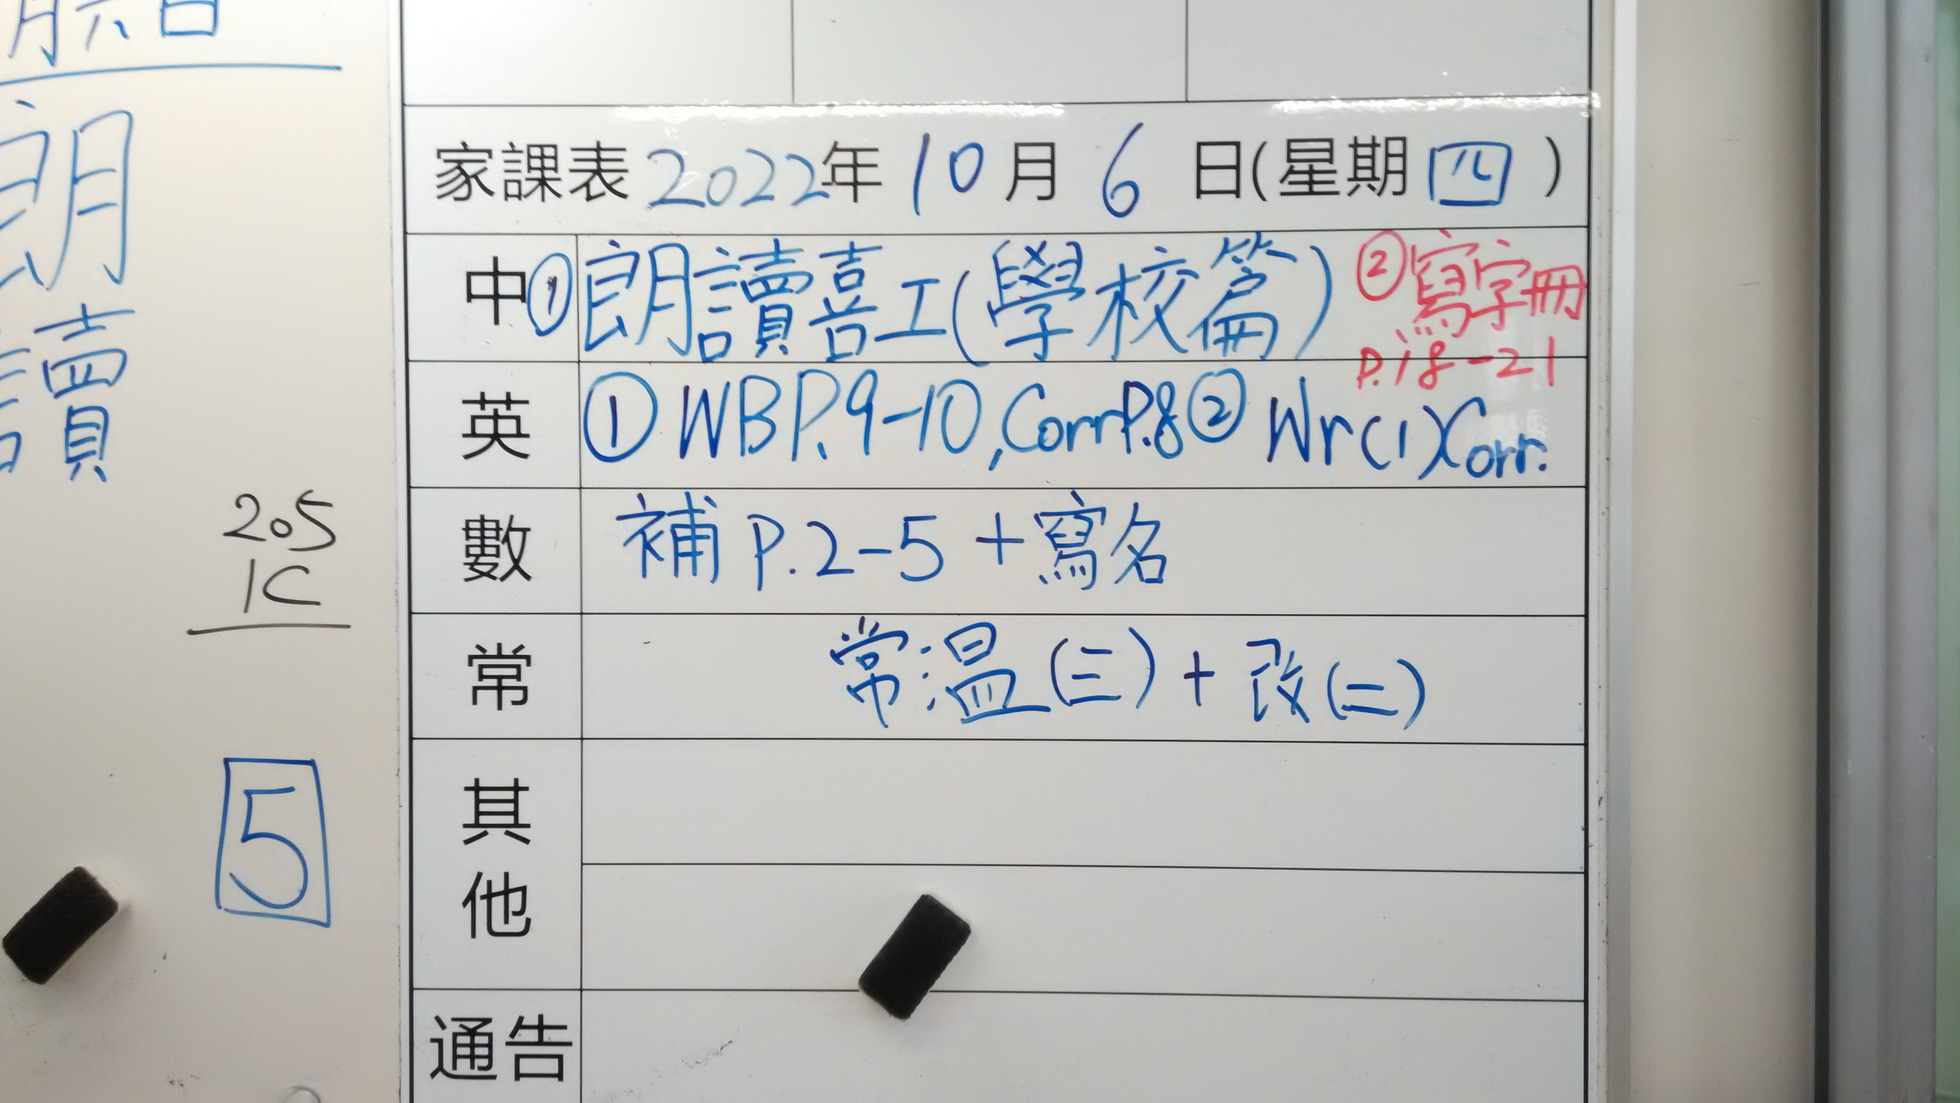 朗
讀
205
1C
5
家課表 2022年 10 月 6 日(星期 四 )
中 ① 朗讀喜工(學校篇) ② 寫字冊
P.18-21
英 ① WB P.9-10, Corr P.8 ② Wr(1) Corr.
數 補 P.2-5 + 寫名
常 常温(三) + 改(二)
其
他
通告